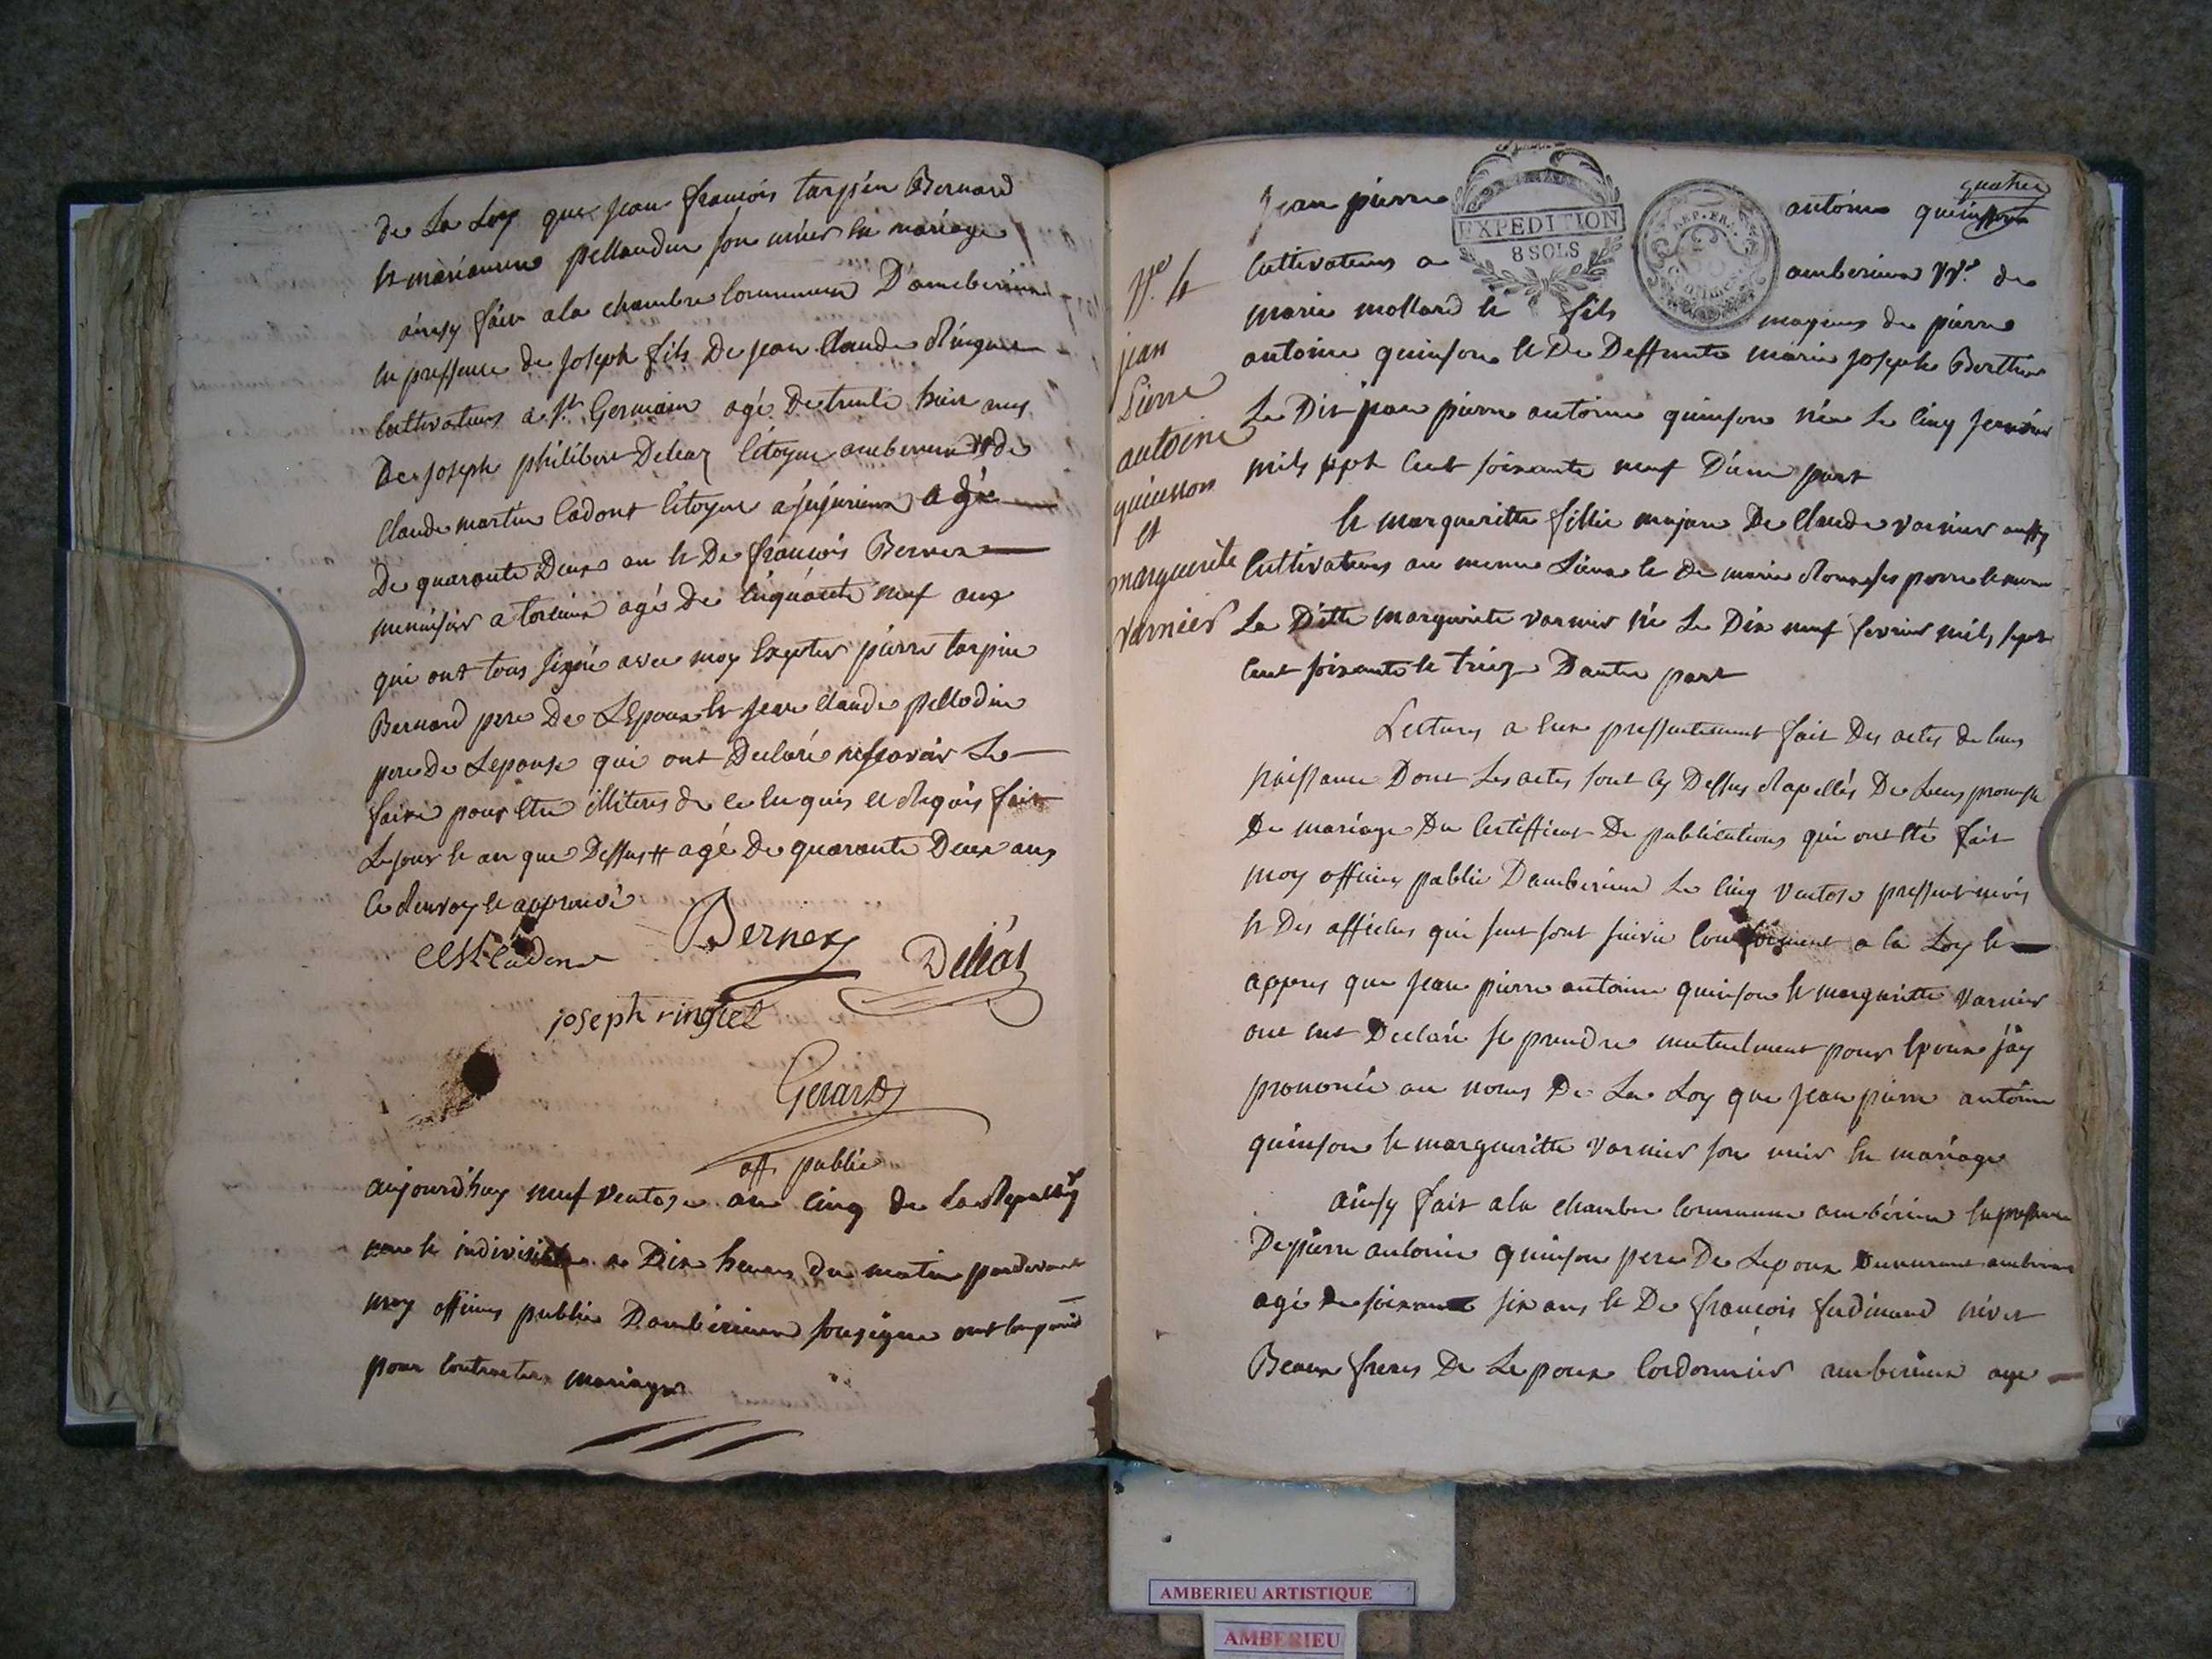 de La Loy que jean françois tarpin Bernard
et marianne pellaudin son unies en mariage
ainsy fait a la chambre commune D'amberieux
en pressence de joseph fils De jean Claude Ringuet
Cultivateur a St Germain agé de trente huit ans
De joseph philibert Deleaz Citoyen amberieux # de
Claude martin Cadont Citoyen a jujurieux agé
De quarante Deux an et De françois Bernex
menuisier a torcieux agé De Cinquante neuf ans
qui ont tous signé avec moy Excepter pierre tarpin
Bernard pere De L'Epoux et jean Claude pellodin
pere De Lepouse qui ont Declaré ne scavoir Le
faire pour etre illiteres de ce enquis et Requis fait
Le jour et an que Dessus # agé De quarante Deux ans
Ce Renvoy et approuvé
Cadont Bernex Deleaz
joseph ringuet
Gerard
off public
aujourdhuy neuf Ventose an Cinq de La Republiq
une et indivisible a Dix heures du matin pardevant
moy officier public D'amberieux sousigné ont Comparu
pour Contracter mariage
quatre
jean pierre antoine quinson
EXPEDITION
8 SOLS
REP. FRA.
Cultivateur a amberieux Vf de
marie mollard et fils majeur de pierre
antoine quinson et De Deffunte marie joseph Berthier
Le Dit jean pierre antoine quinson née Le Cinq janvier
mils sept Cent soixante neuf D'une part
N.o 4
jean
Pierre
antoine
quinson
et
marguerite
varnier
et margueritte fillie majure De Claude varnier aussy
Cultivateur au meme Lieux et de marie
La Ditte marguerite varnier né Le Dix neuf fevrier mils sept
Cent soixante et treize D'autre part
Lecture a Eux pressentement fait Des actes de leur
naissance Dont Les actes sont Cy Dessus Rapellés De Leurs promesse
De mariage Du Certifficat De publications qui ont Eté fait
moy officier public D'amberieux Le Cinq Ventose pressent mois
et Des affiches qui sent sont suivie Conformement a la Loy et
appres que jean pierre antoine quinson et margueritte varnier
ont Declaré se prendre mutuelment pour Epoux jay
prononcé au noms De La Loy que jean pierre antoine
quinson et margueritte varnier son unir En mariage
ainsy fait a la chambre Commune ambérieux En pressence
De pierre antoine quinson pere De Lepoux Demeurant amberieux
agé de soixante six ans et De françois ferdinand nivet
Beaux freres De Lepoux Cordonnier amberieux age
AMBERIEU ARTISTIQUE
AMBERIEU